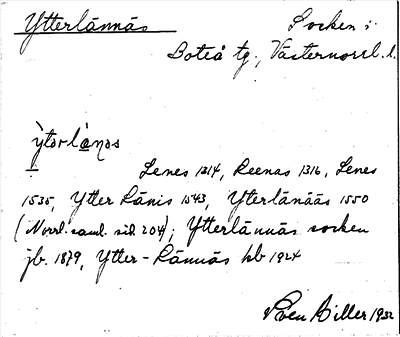 Ytterlännäs Socken i
Boteå tg., Västernorrl. l.
ỳtərlàṇəs
Lenes 1314, Reenas 1316, Lenes
1535, Ytter Länis 1543, Ytterlänääs 1550
(Norrl. saml. sid. 204); Ytterlännäs socken
jb. 1879, Ytter-Lännäs kb 1924
Sven Biller 1932